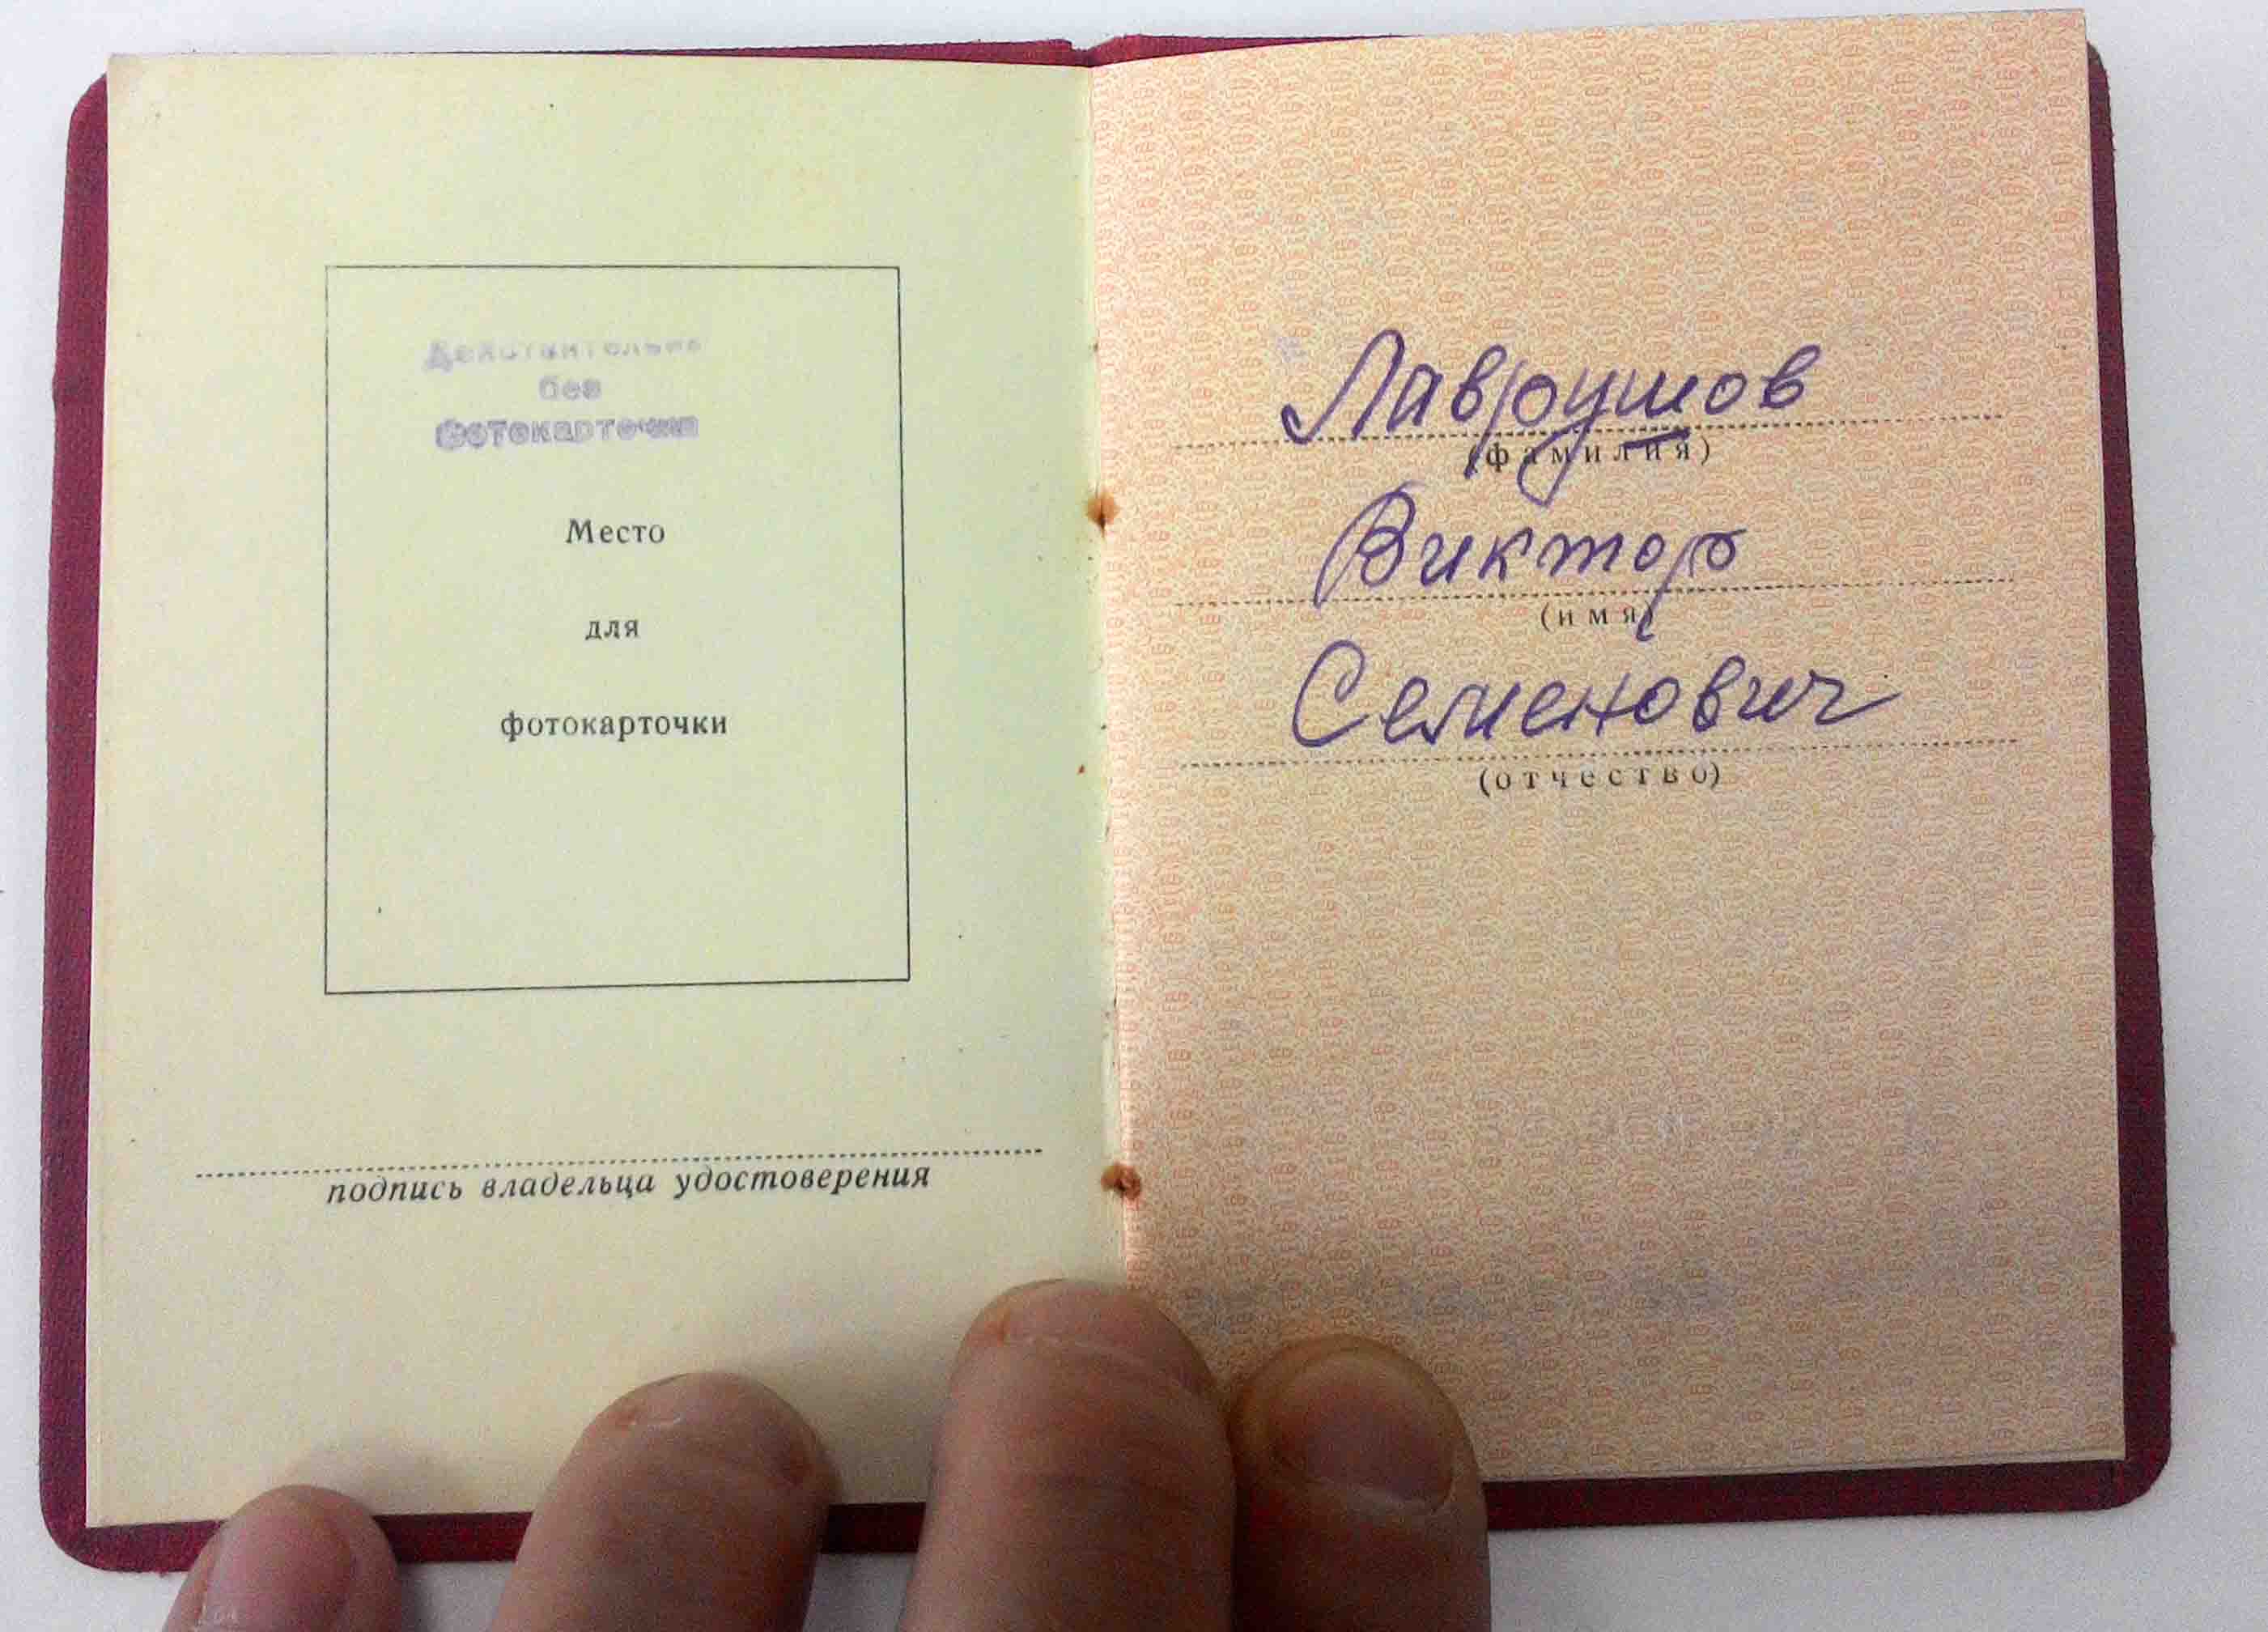 Действительно
без
фотокарточки
Место
для
фотокарточки
подпись владельца удостоверения
Лаврушов
(фамилия)
Виктор
(имя)
Семенович
(отчество)